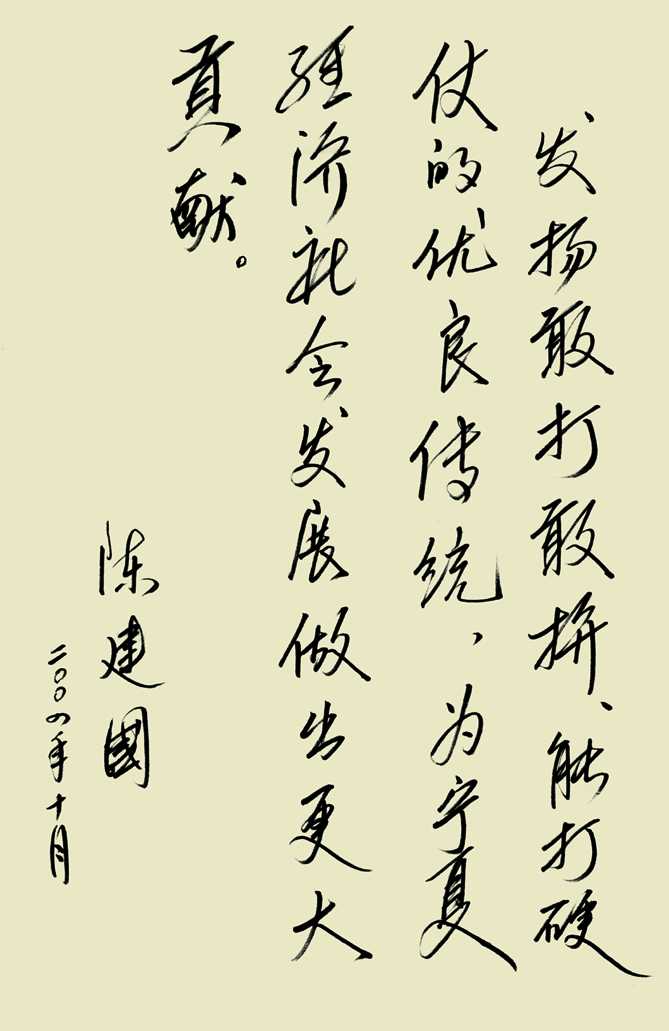 发扬敢打敢拼、能打硬
仗的优良传统，为宁夏
经济社会发展做出更大
贡献。
陈建國
二〇〇四年十月